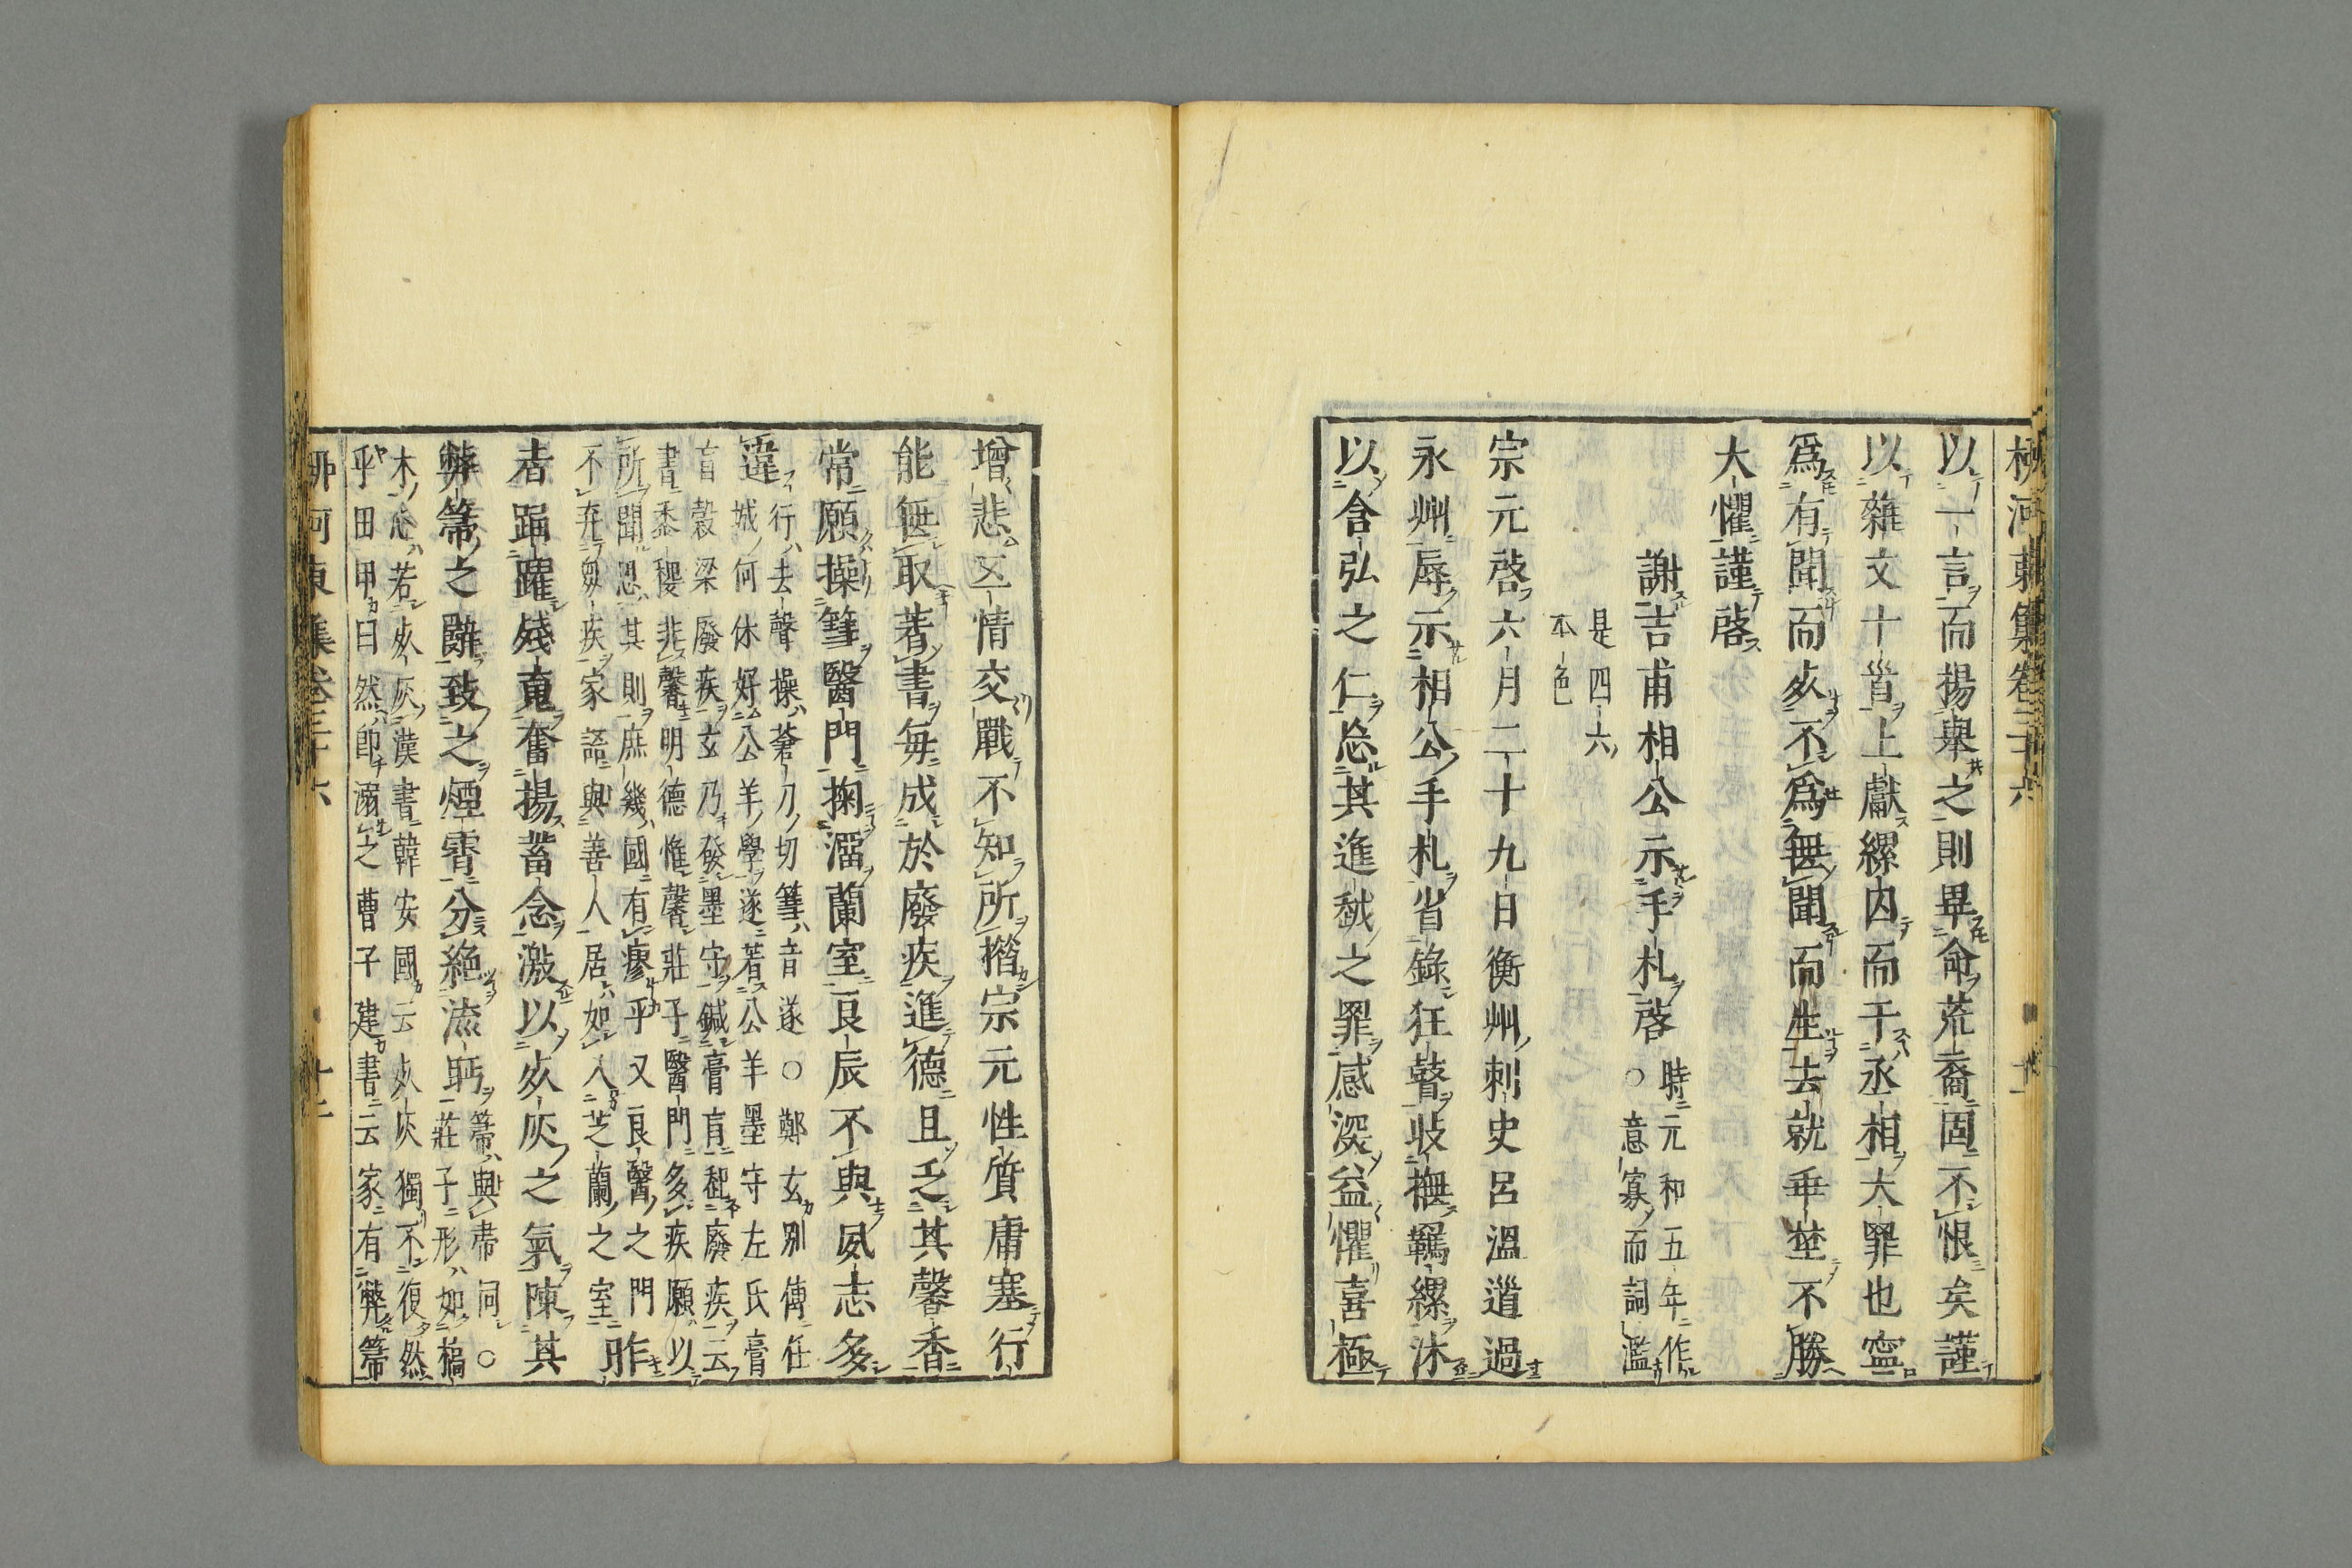 柳河東集卷三十六 十一
以一言而揚舉之則畢命荒裔固不恨矣謹
以雜文十首上獻縲囚而干丞相大罪也寧
爲有聞而死不爲無聞而生去就乖埜不勝
大懼謹啓
謝吉甫相公示手札啓
時元和五年作
○意寡而詞濫
是四六
本色
宗元啓六月二十九日衡州刺史呂溫道過
永州辱示相公手札省錄狂瞽收撫羈縲沐
以含弘之仁忘其進越之罪感深益懼喜極
增悲五情交戰不知所措宗元性質庸塞行
能無取著書每成於廢疾進德且乏其馨香
常願操篲醫門掬溜蘭室良辰不與夙志多
違
行去聲操蒼刀切篲音遂○鄭玄別傳任
城何休好公羊學遂著公羊墨守左氏膏
肓穀梁廢疾玄乃發墨守鍼膏肓起廢疾云
書黍稷非馨明德惟馨莊子醫門多疾願以
所聞思其則庶幾國有瘳乎又良醫之門
不弃羸疾家語與善人居如入芝蘭之室
昨
者踊躍殘竟奮揚蓄念激以死灰之氣陳其
弊箒之辭致之煙霄分絕流眄
箒與帚同○
莊子形如槁
木心若死灰漢書韓安國云死灰獨不復然
乎田甲曰然卽溺之曹子建書云家有弊箒
柳河東集卷三十六 十二